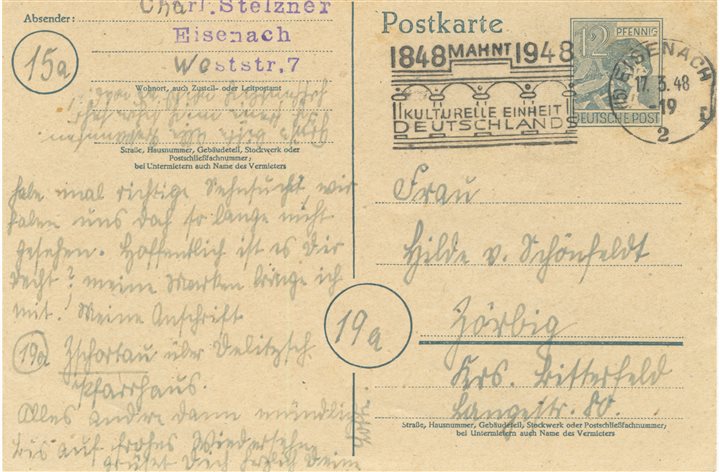 Absender:
Charl. Stelzner
Eisenach
Weststr. 7
15a
Wohnort, auch Zustell- oder Leitpostamt
Straße, Hausnummer, Gebäudeteil, Stockwerk oder
Postschließfachnummer;
bei Untermietern auch Name des Vermieters
habe mal richtige Sehnsucht wir
haben uns doch so lange nicht
gesehen. Hoffentlich ist es Dir
recht? meine Marken bringe ich
mit. Meine Anschrift
19a Zschortau über Delitzsch
Pfarrhaus.
Alles andre dann mündlich
bis auf frohes Wiedersehn
grüßt Dich herzlich Deine
Postkarte
12 PFENNIG
DEUTSCHE POST
1848 MAHNT 1948
KULTURELLE EINHEIT
DEUTSCHLANDS
(15) EISENACH
17. 3. 48
-19
2
r
Frau
Hilde v. Schönfeldt
19a
Zörbig
Krs. Bitterfeld
Langestr. 80.
Straße, Hausnummer, Gebäudeteil, Stockwerk oder Postschließfachnummer;
bei Untermietern auch Name des Vermieters